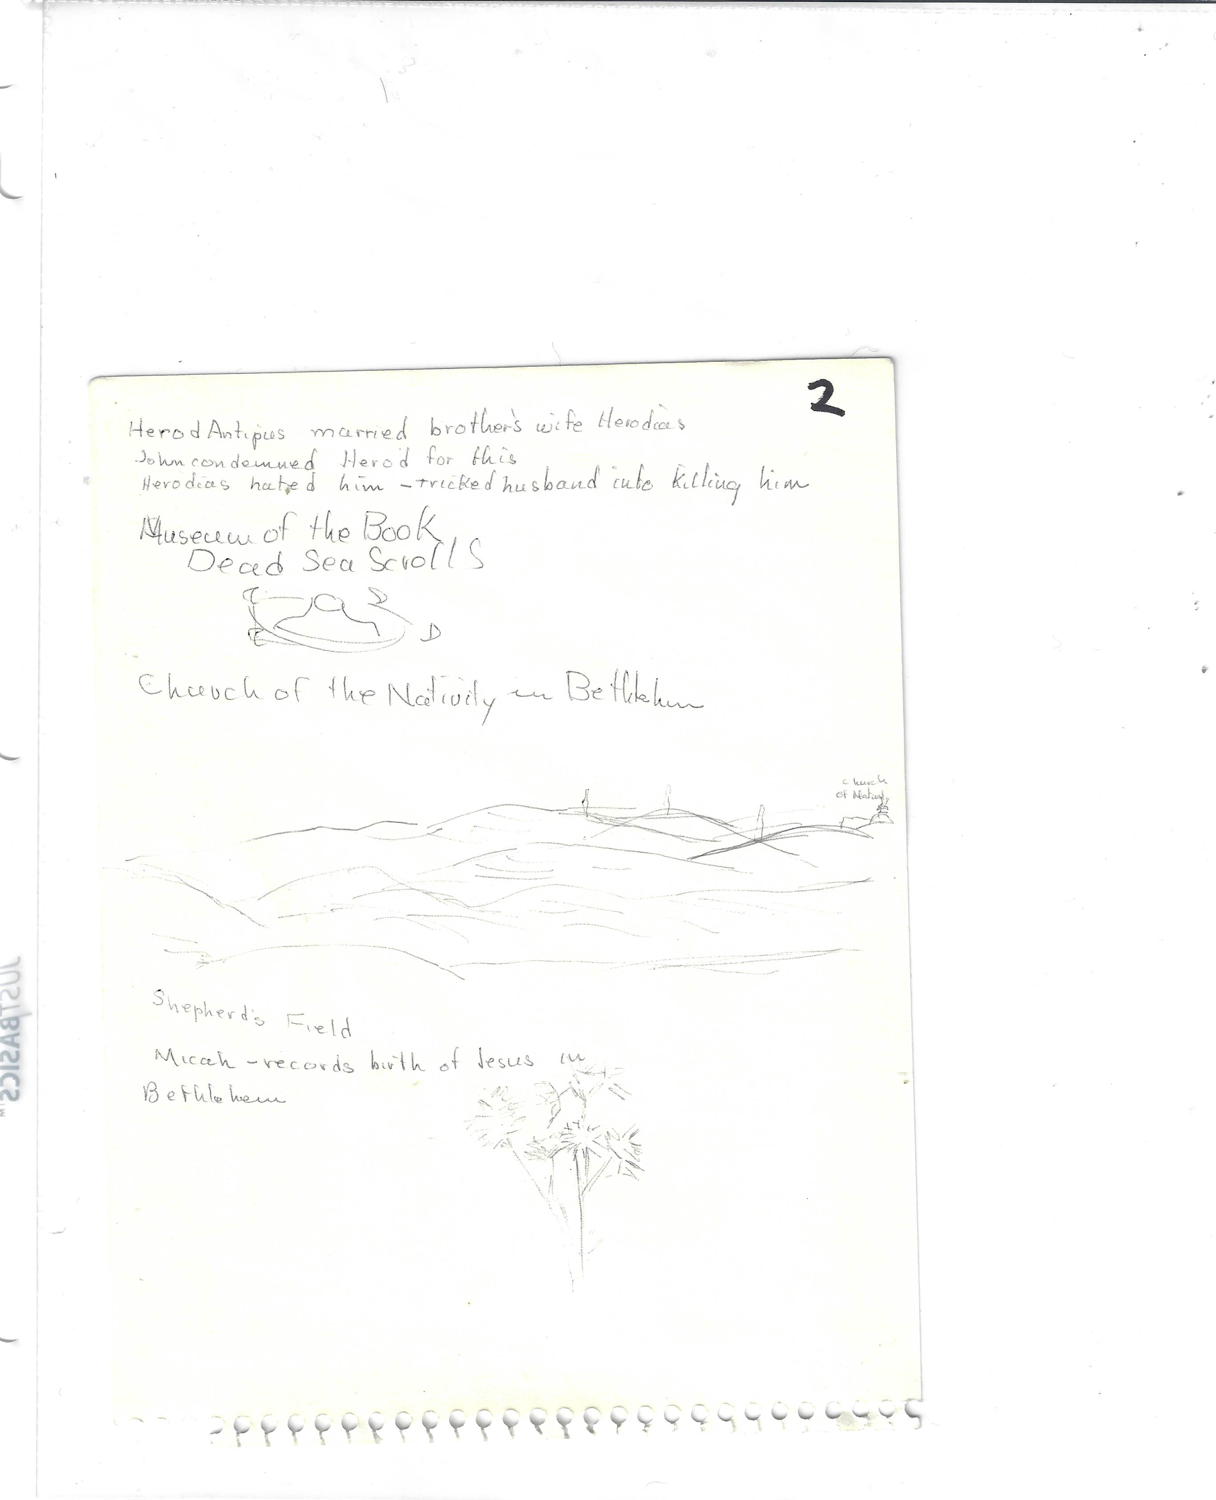 2
Herod Antipus married brother's wife Herodias
John condemned Herod for this
Herodias hated him - tricked husband into killing him
Museum of the Book
Dead Sea Scrolls
D
Church of the Nativity in Bethlehem
Church
of Nativity
Shepherd's Field
Micah - records birth of Jesus in
Bethlehem
JUST BASICS™